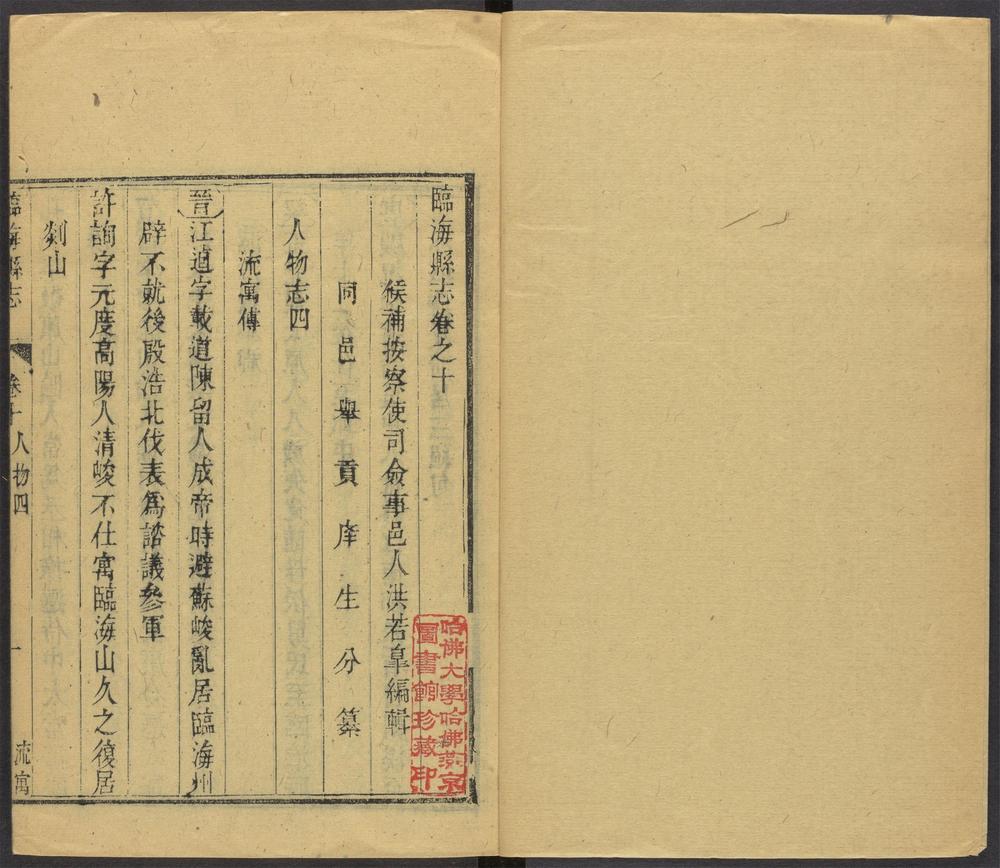 臨海縣志卷之十
候補按察使司僉事邑人洪若皐編輯
同邑舉貢庠生分纂
人物志四
流寓傳
晉江逌字載道陳留人成帝時避蘇峻亂居臨海州
辟不就後殷浩北伐表爲諮議參軍
許詢字元度高陽人清峻不仕寓臨海山久之復居
剡山
臨海縣志
卷十人物四
一
流寓
哈佛大學哈佛燕京
圖書館珍藏印